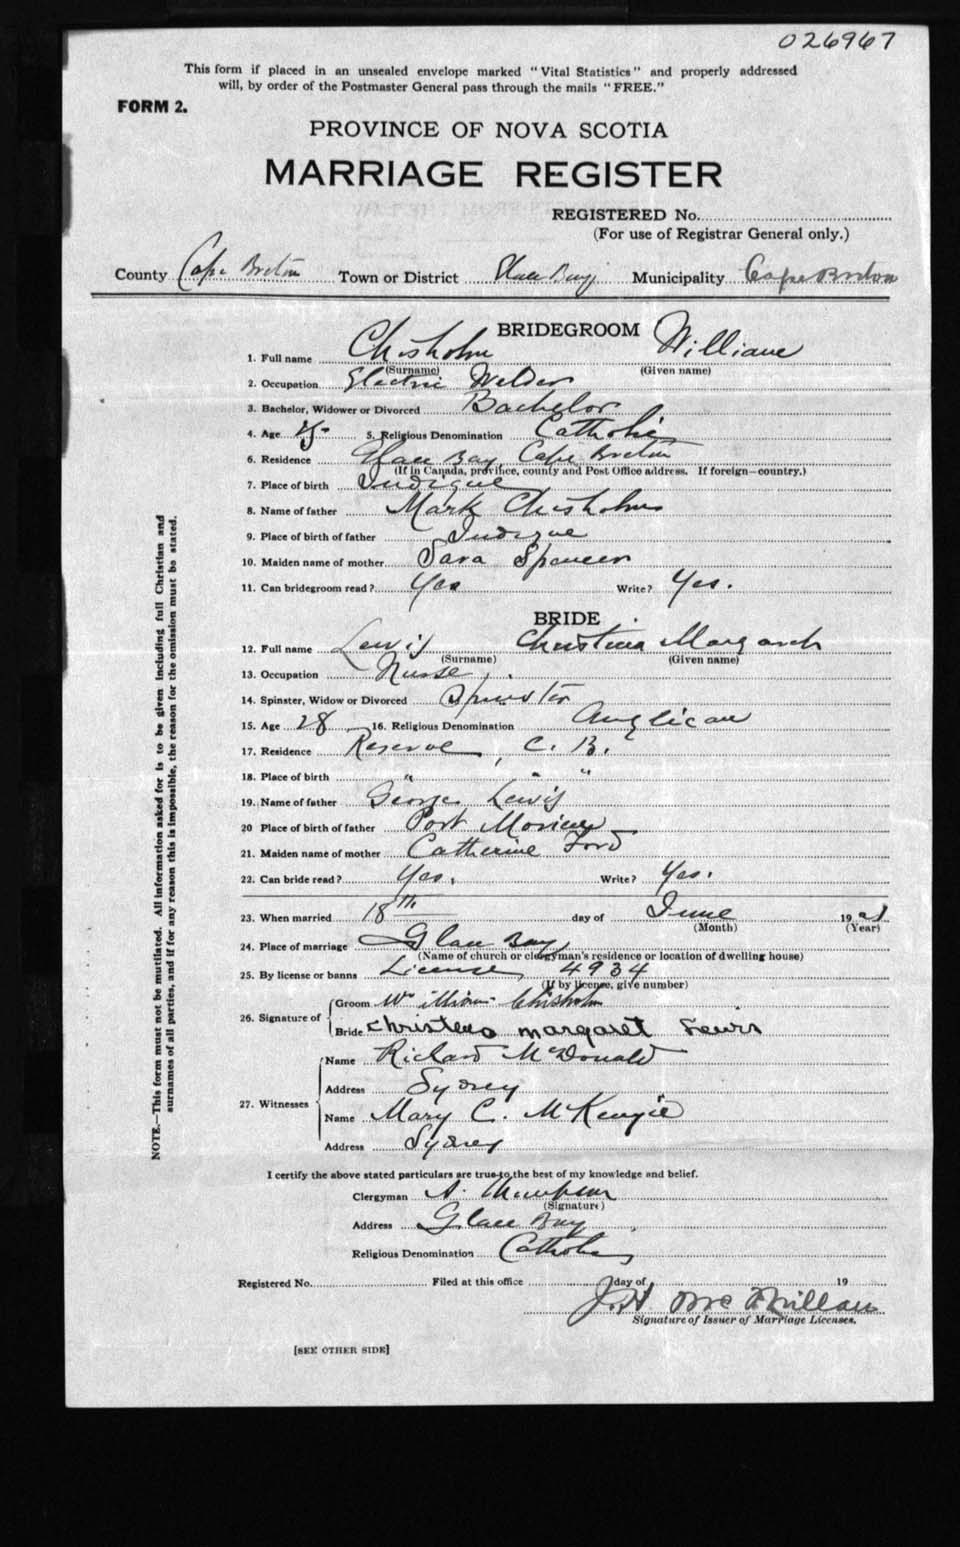 026967
This form if placed in an unsealed envelope marked "Vital Statistics" and properly addressed
will, by order of the Postmaster General pass through the mails "FREE."
FORM 2.
PROVINCE OF NOVA SCOTIA
MARRIAGE REGISTER
REGISTERED No.
(For use of Registrar General only.)
County Cape Breton Town or District Glace Bay Municipality Cape Breton
BRIDEGROOM
1. Full name Chisholm William
(Surname) (Given name)
2. Occupation Electric Welder
3. Bachelor, Widower or Divorced Bachelor
4. Age 5. Religious Denomination Catholic
6. Residence Glace Bay, Cape Breton
(If in Canada, province, county and Post Office address. If foreign—country.)
7. Place of birth Judique
8. Name of father Mark Chisholm
9. Place of birth of father Judique
10. Maiden name of mother Sara Spencer
11. Can bridegroom read? Yes Write? Yes.
BRIDE
12. Full name Lewis Christina Margaret
(Surname) (Given name)
13. Occupation Nurse
14. Spinster, Widow or Divorced Spinster
15. Age 28 16. Religious Denomination Anglican
17. Residence Reserve, C. B.
18. Place of birth " " "
19. Name of father George Lewis
20 Place of birth of father Port Morien
21. Maiden name of mother Catherine Ford
22. Can bride read? Yes. Write? Yes.
23. When married 18th day of June 1921
(Month) (Year)
24. Place of marriage Glace Bay
(Name of church or clergyman's residence or location of dwelling house)
25. By license or banns License 4934
(If by license, give number)
26. Signature of Groom William Chisholm
Bride Christena Margaret Lewis
27. Witnesses Name Richard McDonald
Address Sydney
Name Mary C. McKenzie
Address Sydney
I certify the above stated particulars are true to the best of my knowledge and belief.
Clergyman A. Thompson
(Signature)
Address Glace Bay
Religious Denomination Catholic
Registered No. Filed at this office day of 19
J. H. McMillan
Signature of Issuer of Marriage Licenses.
[SEE OTHER SIDE]
NOTE.—This form must not be mutilated. All information asked for is to be given including full Christian and
surnames of all parties, and if for any reason this is impossible, the reason for the omission must be stated.